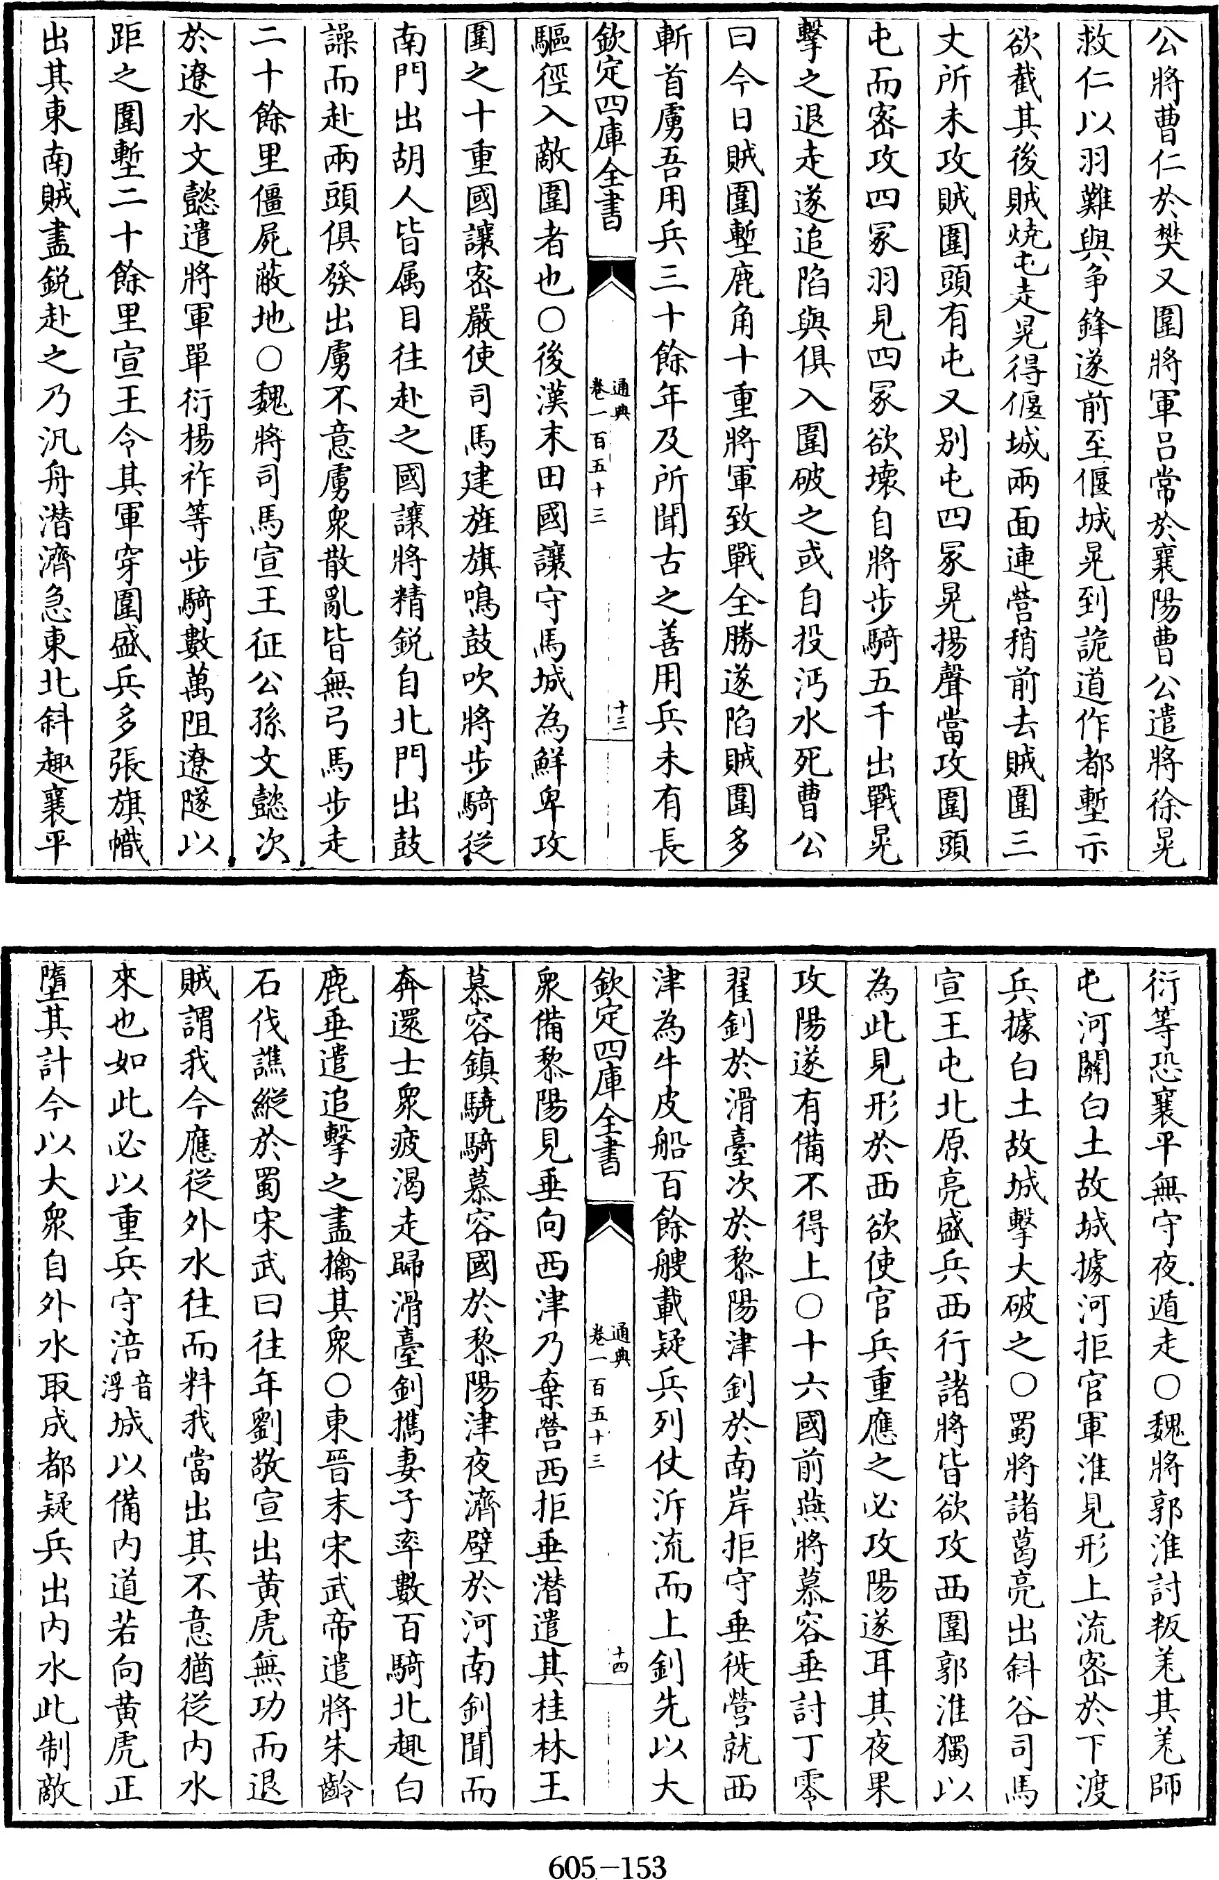 公將曹仁於樊又圍將軍吕常於襄陽曹公遣將徐晃
救仁以羽難與争鋒遂前至偃城晃到詭道作都塹示
欲截其後賊燒屯走晃得偃城兩面連營稍前去賊圍三
丈所未攻賊圍頭有屯又别屯四冢晃揚聲當攻圍頭
屯而密攻四冢羽見四冢欲壞自將步騎五千出戰晃
擊之退走遂追陷與俱入圍破之或自投沔水死曹公
曰今日賊圍塹鹿角十重將軍致戰全勝遂陷賊圍多
斬首虜吾用兵三十餘年及所聞古之善用兵未有長
欽定四庫全書
通典
卷一百五十三
十三
驅徑入敵圍者也○後漢末田國讓守馬城為鮮卑攻
圍之十重國讓密嚴使司馬建旌旗鳴鼓吹將步騎從
南門出胡人皆属目往赴之國讓將精鋭自北門出鼓
譟而赴兩頭俱發出虜不意虜衆散亂皆無弓馬步走
二十餘里僵屍蔽地○魏將司馬宣王征公孫文懿次
於遼水文懿遣將軍單衍楊祚等步騎數萬阻遼隧以
距之圍塹二十餘里宣王令其軍穿圍盛兵多張旗幟
出其東南賊盡鋭赴之乃汎舟潛濟急東北斜趣襄平
衍等恐襄平無守夜遁走○魏將郭淮討叛羌其羌師
屯河關白土故城據河拒官軍淮見形上流密於下渡
兵據白土故城擊大破之○蜀將諸葛亮出斜谷司馬
宣王屯北原亮盛兵西行諸將皆欲攻西圍郭淮獨以
為此見形於西欲使官兵重應之必攻陽遂耳其夜果
攻陽遂有備不得上○十六國前燕將慕容垂討丁零
翟釗於滑臺次於黎陽津釗於南岸拒守垂徙營就西
津為牛皮船百餘艘載疑兵列仗泝流而上釗先以大
欽定四庫全書
通典
卷一百五十三
十四
衆備黎陽見垂向西津乃棄營西拒垂潛遣其桂林王
慕容鎮驍騎慕容國於黎陽津夜濟壁於河南釗聞而
奔還士衆疲渴走歸滑臺釗攜妻子率數百騎北趣白
鹿垂遣追擊之盡擒其衆○東晉末宋武帝遣將朱齡
石伐譙縱於蜀宋武曰往年劉敬宣出黄虎無功而退
賊謂我今應從外水往而料我當出其不意猶從内水
來也如此必以重兵守涪音浮城以備内道若向黄虎正
墮其計今以大衆自外水取成都疑兵出内水此制敵
605-153